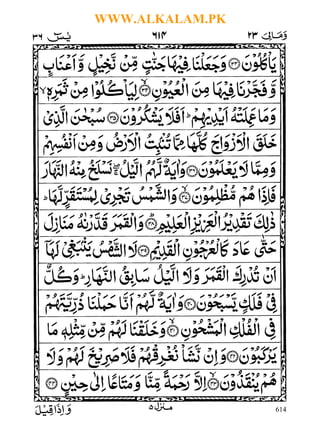 WWW.ALKALAM.PK
وَمَالِیَ ٢٣
٦١٤
یٰسٓ ٣٦
یَاْكُلُوْنَ ﴿٣٣﴾ وَجَعَلْنَا فِیْهَا جَنّٰتٍ مِّنْ نَّخِیْلٍ وَّاَعْنَابٍ
وَّفَجَّرْنَا فِیْهَا مِنَ الْعُیُوْنِ ﴿٣٤﴾ لِیَاْكُلُوْا مِنْ ثَمَرِهٖ ۙ
وَمَا عَمِلَتْهُ اَیْدِیْهِمْ ؕ اَفَلَا یَشْكُرُوْنَ ﴿٣٥﴾ سُبْحٰنَ الَّذِیْ
خَلَقَ الْاَزْوَاجَ كُلَّهَا مِمَّا تُنْۢبِتُ الْاَرْضُ وَمِنْ اَنْفُسِهِمْ
وَمِمَّا لَا یَعْلَمُوْنَ ﴿٣٦﴾ وَاٰیَةٌ لَّهُمُ الَّیْلُ ۖۚ نَسْلَخُ مِنْهُ النَّهَارَ
فَاِذَا هُمْ مُّظْلِمُوْنَ ﴿٣٧﴾ وَالشَّمْسُ تَجْرِیْ لِمُسْتَقَرٍّ لَّهَا ؕ
ذٰلِكَ تَقْدِیْرُ الْعَزِیْزِ الْعَلِیْمِ ﴿٣٨﴾ وَالْقَمَرَ قَدَّرْنٰهُ مَنَازِلَ
حَتّٰی عَادَ كَالْعُرْجُوْنِ الْقَدِیْمِ ﴿٣٩﴾ لَا الشَّمْسُ یَنْۢبَغِیْ لَهَاۤ
اَنْ تُدْرِكَ الْقَمَرَ وَلَا الَّیْلُ سَابِقُ النَّهَارِ ؕ وَكُلٌّ
فِیْ فَلَكٍ یَّسْبَحُوْنَ ﴿٤٠﴾ وَاٰیَةٌ لَّهُمْ اَنَّا حَمَلْنَا ذُرِّیَّتَهُمْ
فِی الْفُلْكِ الْمَشْحُوْنِ ﴿٤١﴾ وَخَلَقْنَا لَهُمْ مِّنْ مِّثْلِهٖ مَا
یَرْكَبُوْنَ ﴿٤٢﴾ وَاِنْ نَّشَاْ نُغْرِقْهُمْ فَلَا صَرِیْخَ لَهُمْ وَلَا
هُمْ یُنْقَذُوْنَ ﴿٤٣﴾ اِلَّا رَحْمَةً مِّنَّا وَمَتَاعًا اِلٰی حِیْنٍ ﴿٤٤﴾
وَاِذَا قِیْلَ
منزل ٥
614